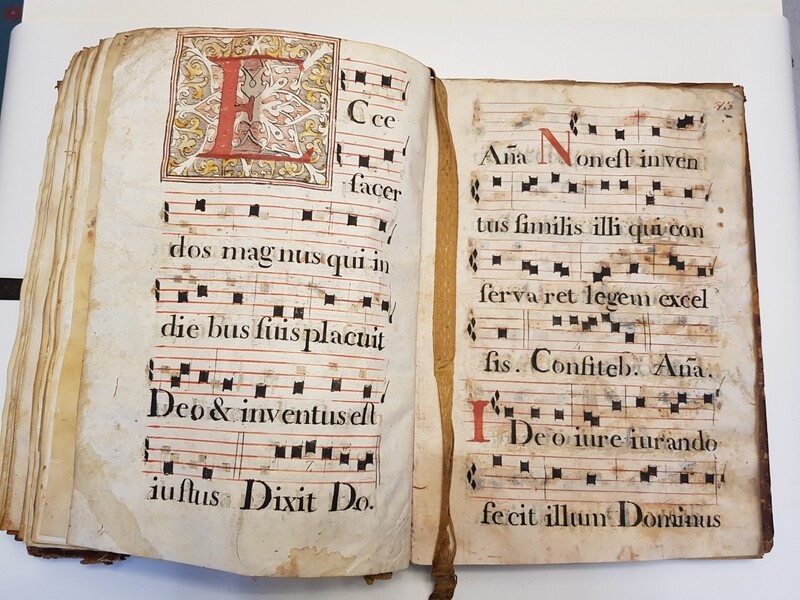 ECce
ſacer
dos magnus qui in
die bus ſuis placuit
Deo & inventus eſt
iuſtus Dixit Do.
Aña Non eſt in ven
tus ſimilis illi qui con
ſerva ret legem excel
ſis. Conſiteb. Aña.
I Deo iure iurando
fecit illum Dominus